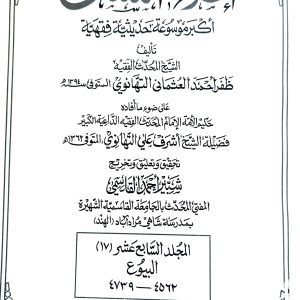 أكبر موسوعة حديثية فقهية
تأليف
الشيخ المحدث الفقيه
ظفر أحمد العثماني التهانوي المتوفى ١٣٩٤هـ
على ضوء ما أفاده
حكيم الأمة الإمام المحدث الفقيه الداعية الكبير
فضيلة الشيخ أشرف علي التهانوي المتوفى ١٣٦٢هـ
تحقيق وتعليق وتخريج
شبير أحمد القاسمي
المفتي المحدث بالجامعة القاسمية الشهيرة
بمدرسة شاهي مراد آباد (الهند)
المجلد السابع عشر (١٧)
البيوع
٤٥٦٢ — ٤٧٣٩